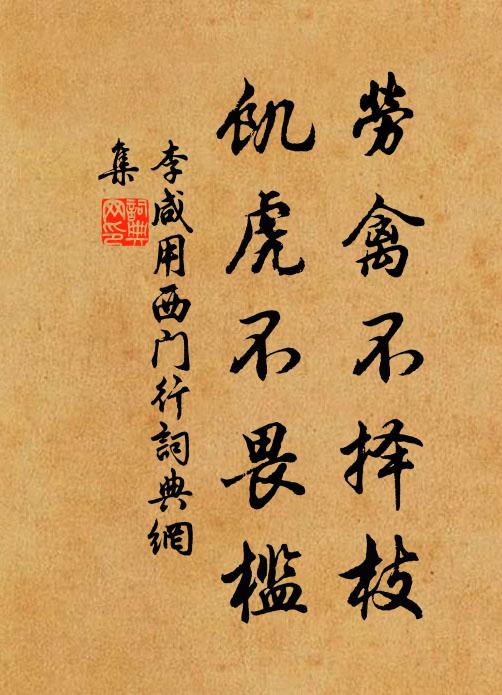 劳禽不择枝
飢虎不畏槛
李咸用西门行詞典網
集
詞典网印